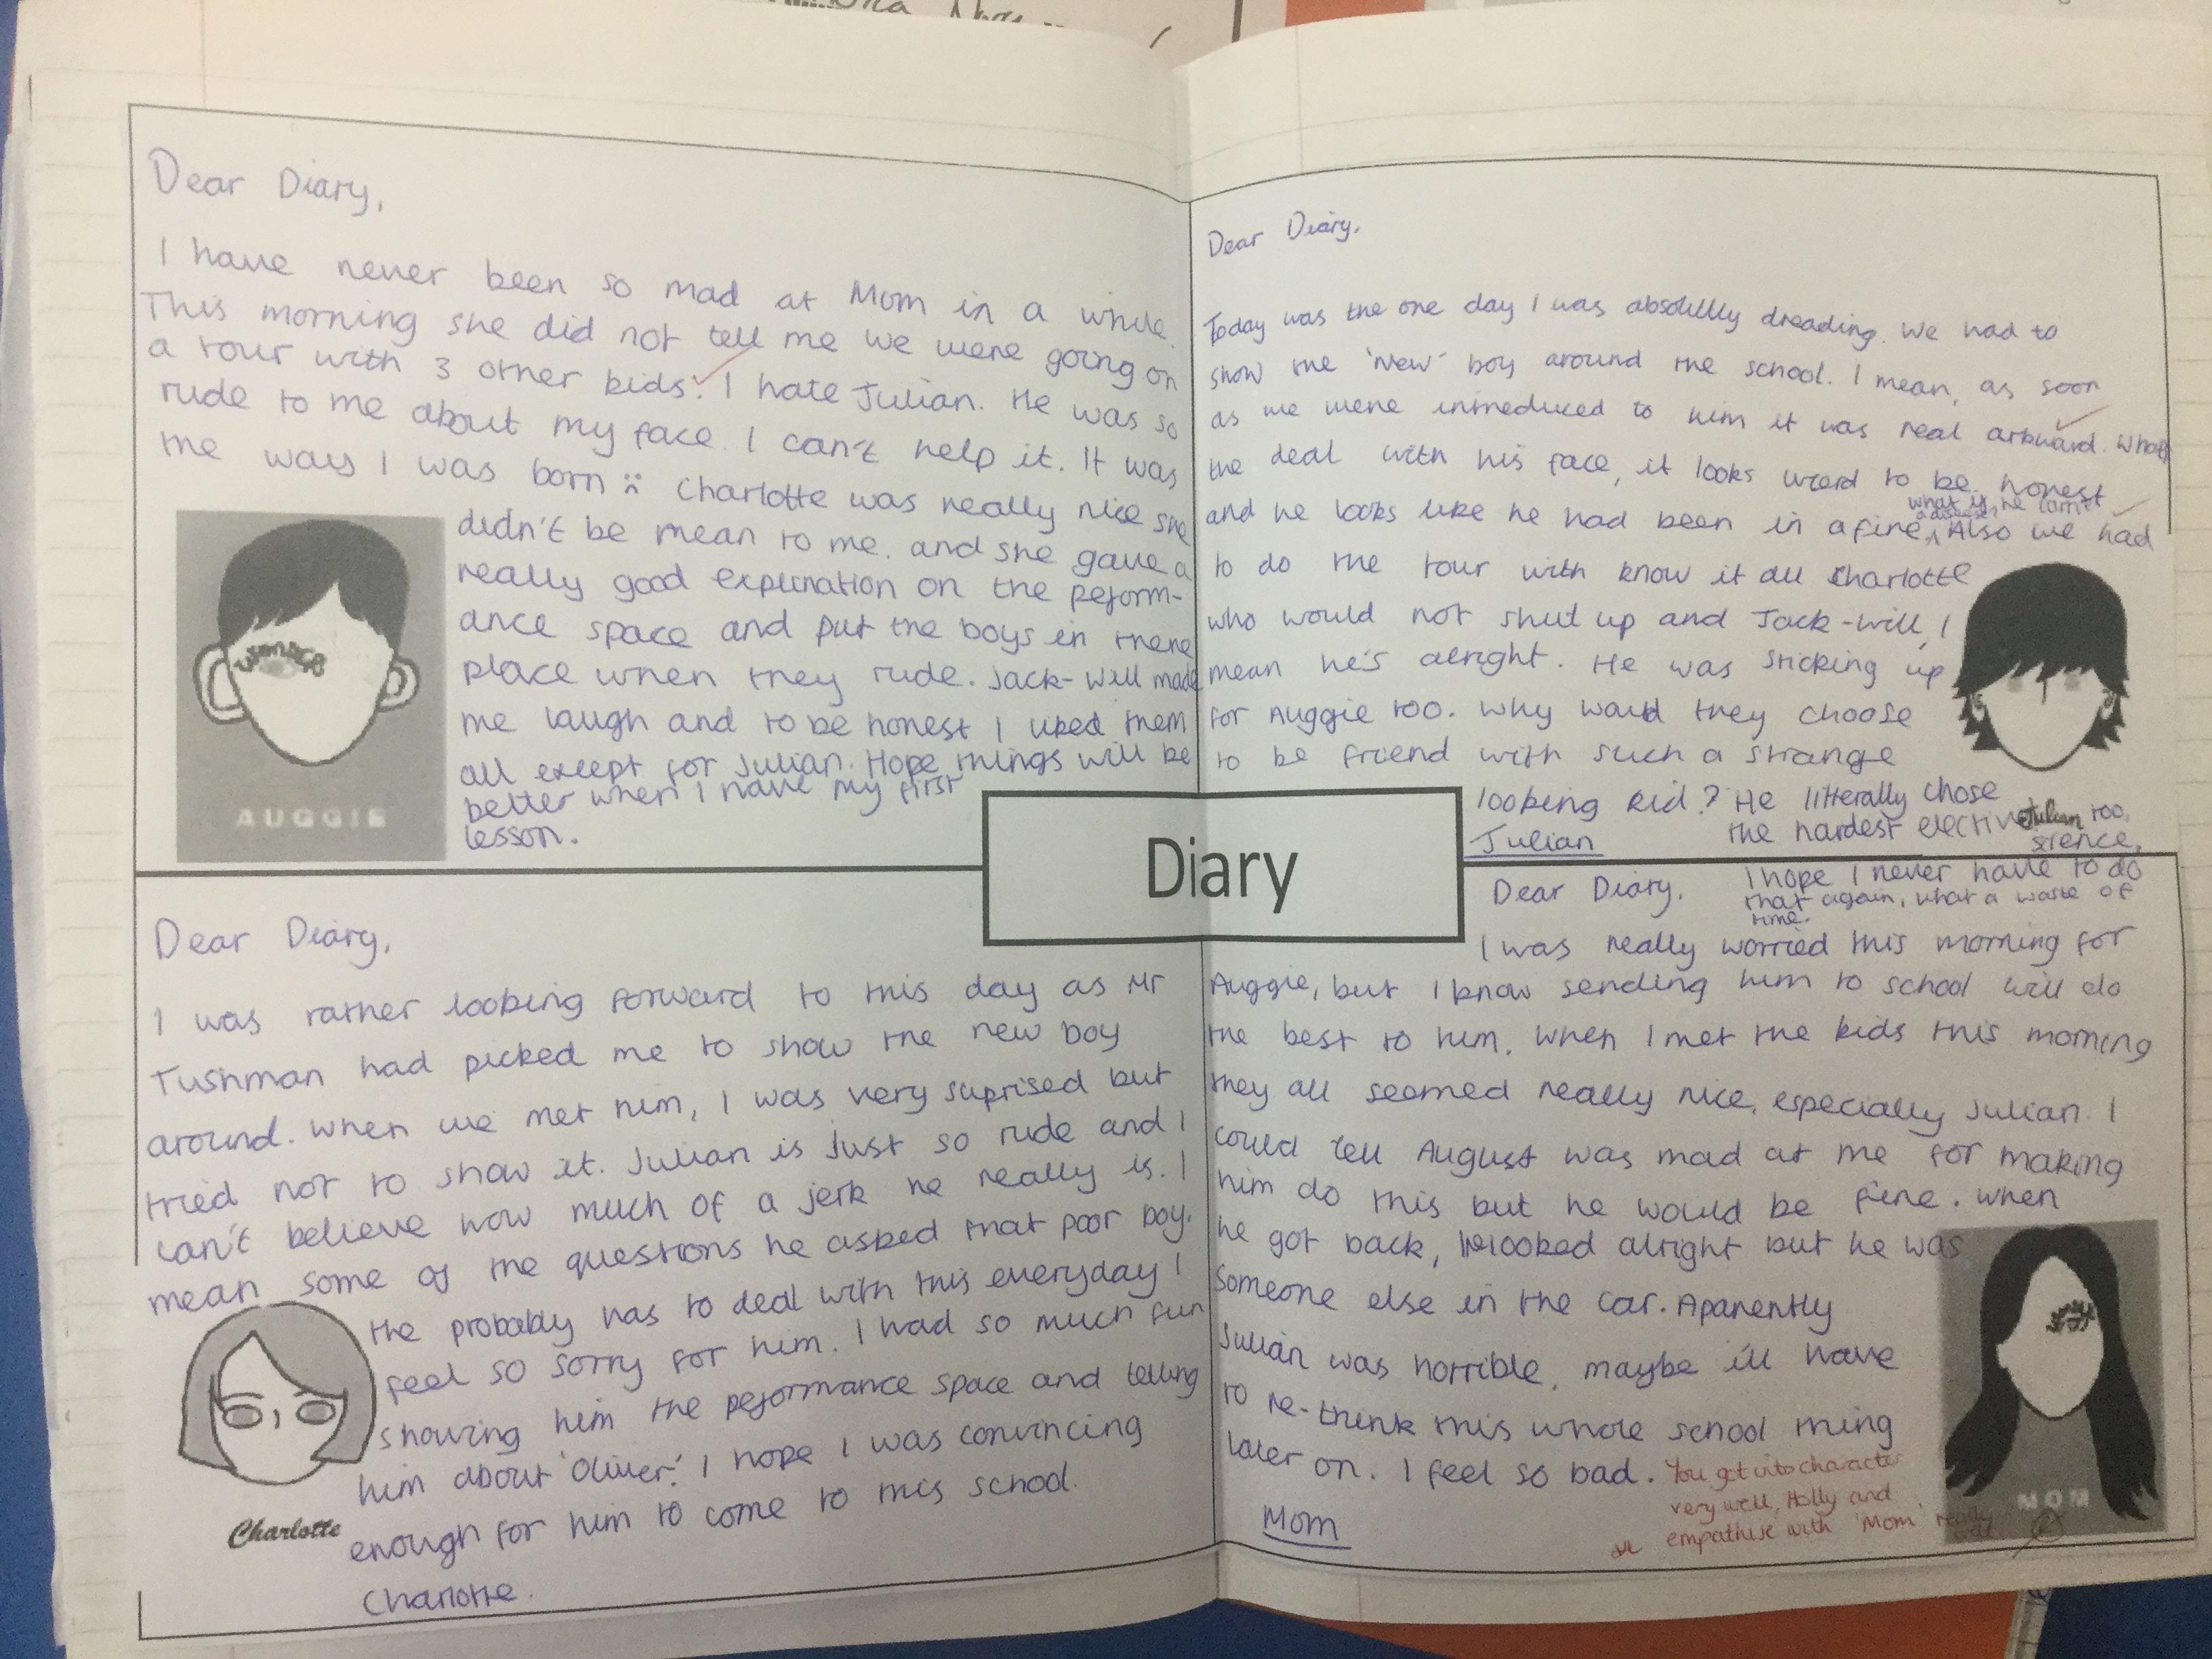 Dear Diary,
I have never been so mad at Mom in a while.
This morning she did not tell me we were going on
a tour with 3 other kids! I hate Julian. He was so
rude to me about my face. I can't help it. It was
the way I was born :( Charlotte was really nice she
didn't be mean to me. and she gave a
really good explination on the peform-
ance space and put the boys in there
place when they rude. Jack-Will made
me laugh and to be honest I liked them
all except for Julian. Hope things will be
better when I have my first
lesson.
wonder
AUGGIE
Dear Diary,
Today was the one day I was absolutlly dreading. We had to
show the 'New' boy around the school. I mean, as soon
as we were introduced to him it was real arkward. Whats
the deal with his face, it looks wierd to be honest
and he looks like he had been in a fire, Also we had
what if he
to do the tour with know it all Charlotte
who would not shut up and Jack-Will, I
mean he's alright. He was sticking up
for Auggie too. Why would they choose
to be friend with such a strange
looking kid? He litterally chose
the hardest elective too,
sience,
I hope I never have to do
that again, what a waste of
time.
Julian
Julian
Diary
Dear Diary,
I was rather looking forward to this day as Mr
Tushman had picked me to show the new boy
around. When we met him, I was very suprised but
tried not to show it. Julian is just so rude and I
can't believe how much of a jerk he really is. I
mean some of the questions he asked that poor boy.
He probably has to deal with this everyday I
feel so sorry for him. I had so much fun
showing him the peformance space and telling
him about 'Oliver'. I hope I was convincing
enough for him to come to this school.
Charlotte.
Charlotte
Dear Diary,
I was really worried this morning for
Auggie, but I know sending him to school will do
the best to him. When I met the kids this morning
they all seemed really nice, especially Julian. I
could tell August was mad at me for making
him do this but he would be fine. When
he got back, he looked alright but he was
someone else in the car. Aparently
Julian was horrible, maybe i'll have
to re-think this whole school thing
later on. I feel so bad.
Mom
MOM
You get into character
very well, Holly and
empathise with 'Mom' really